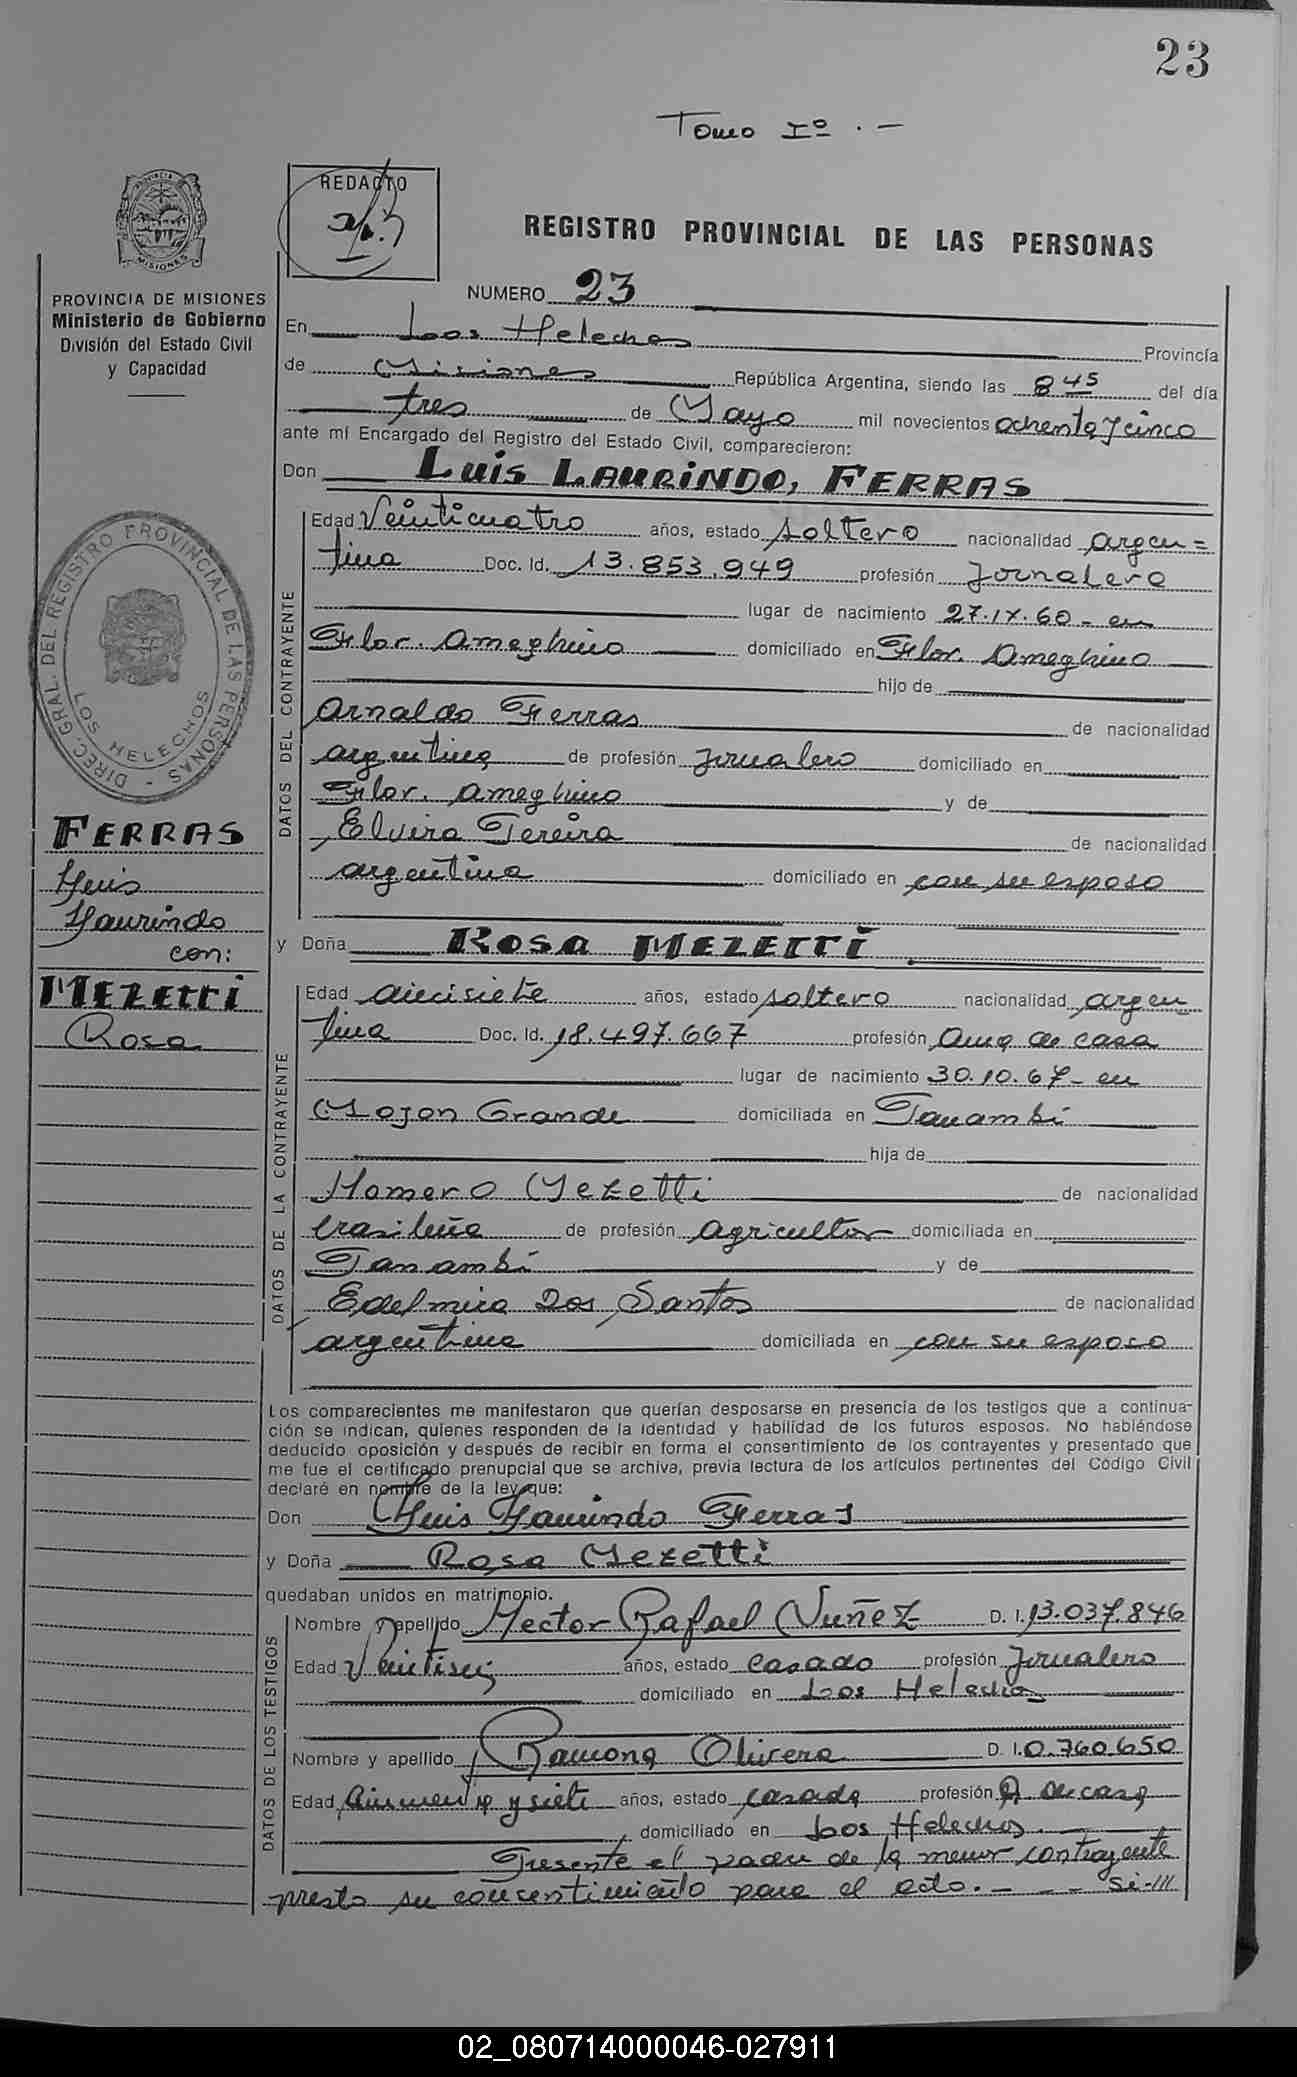 23
Tomo Iº . -
REDACTO
REGISTRO PROVINCIAL DE LAS PERSONAS
PROVINCIA DE MISIONES
Ministerio de Gobierno
División del Estado Civil
y Capacidad
NUMERO 23
En Los Helechos Provincia
de Misiones República Argentina, siendo las 8 45 del día
tres de Mayo mil novecientos ochenta y cinco
ante mí Encargado del Registro del Estado Civil, comparecieron:
Don LUIS LAURINDO, FERRAS
DATOS DEL CONTRAYENTE
Edad Veinticuatro años, estado soltero nacionalidad argen=
tina Doc. Id. 13.853.949 profesión Jornalero
lugar de nacimiento 27.IX.60 - en
Flor. Ameghino domiciliado en Flor. Ameghino
hijo de
Arnaldo Ferras de nacionalidad
argentina de profesión Jornalero domiciliado en
Flor. Ameghino y de
Elvira Pereira de nacionalidad
argentina domiciliado en con su esposo
DIREC. GRAL. DEL REGISTRO PROVINCIAL DE LAS PERSONAS -
LOS HELECHOS
FERRAS
Luis
Laurindo
con:
MEZETTI
Rosa
y Doña ROSA MEZETTI
DATOS DE LA CONTRAYENTE
Edad diecisiete años, estado soltero nacionalidad argen
tina Doc. Id. 18.497.667 profesión Ama de casa
lugar de nacimiento 30.10.67 - en
Mojon Grande domiciliada en Panambí
hija de
Homero Mezetti de nacionalidad
brasileña de profesión Agricultor domiciliada en
Panambí y de
Edelmira Dos Santos de nacionalidad
argentina domiciliada en con su esposo
Los comparecientes me manifestaron que querían desposarse en presencia de los testigos que a continua-
ción se indican, quienes responden de la identidad y habilidad de los futuros esposos. No habiéndose
deducido oposición y después de recibir en forma el consentimiento de los contrayentes y presentado que
me fue el certificado prenupcial que se archiva, previa lectura de los artículos pertinentes del Código Civil
declaré en nombre de la ley que:
Don Luis Laurindo Ferras
y Doña Rosa Mezetti
quedaban unidos en matrimonio.
DATOS DE LOS TESTIGOS
Nombre y apellido Hector Rafael Nuñez D. I. 13.037.846
Edad Veintiseis años, estado casado profesión Jornalero
domiciliado en Los Helechos
Nombre y apellido Ramona Olivera D. I. 0.760.650
Edad y siete años, estado casada profesión A de casa
domiciliado en Los Helechos.
Presente el padre de la menor contrayente
presto su consentimiento para el acto. - - - Si-///
02_080714000046-027911